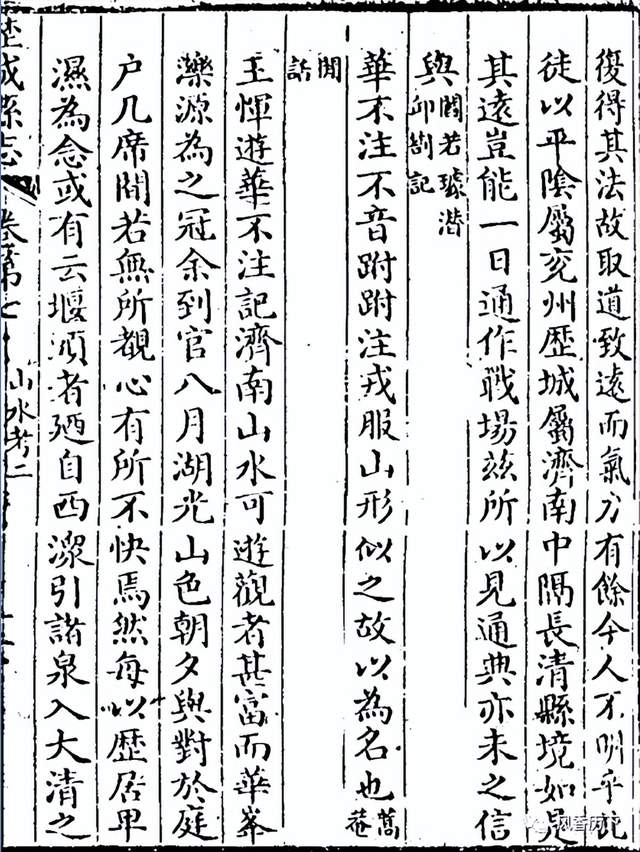 復得其法故取道致遠而氣力有餘今人不明乎此
徒以平陰屬兖州歷城屬濟南中隔長清縣境如是
其遠豈能一日通作戰場兹所以見通典亦未之信
與閻若璩潛
邱劄記
華不注不音跗跗注戎服山形似之故以為名也蒿菴
閒
話
王惲遊華不注記濟南山水可遊觀者甚富而華峯
濼源為之冠余到官八月湖光山色朝夕與對於庭
户几席間若無所覩心有所不快焉然每以歷居卑
濕為念或有云堰頭者廼自西濼引諸泉入大清之
歷城縣志 卷第七 山水考二